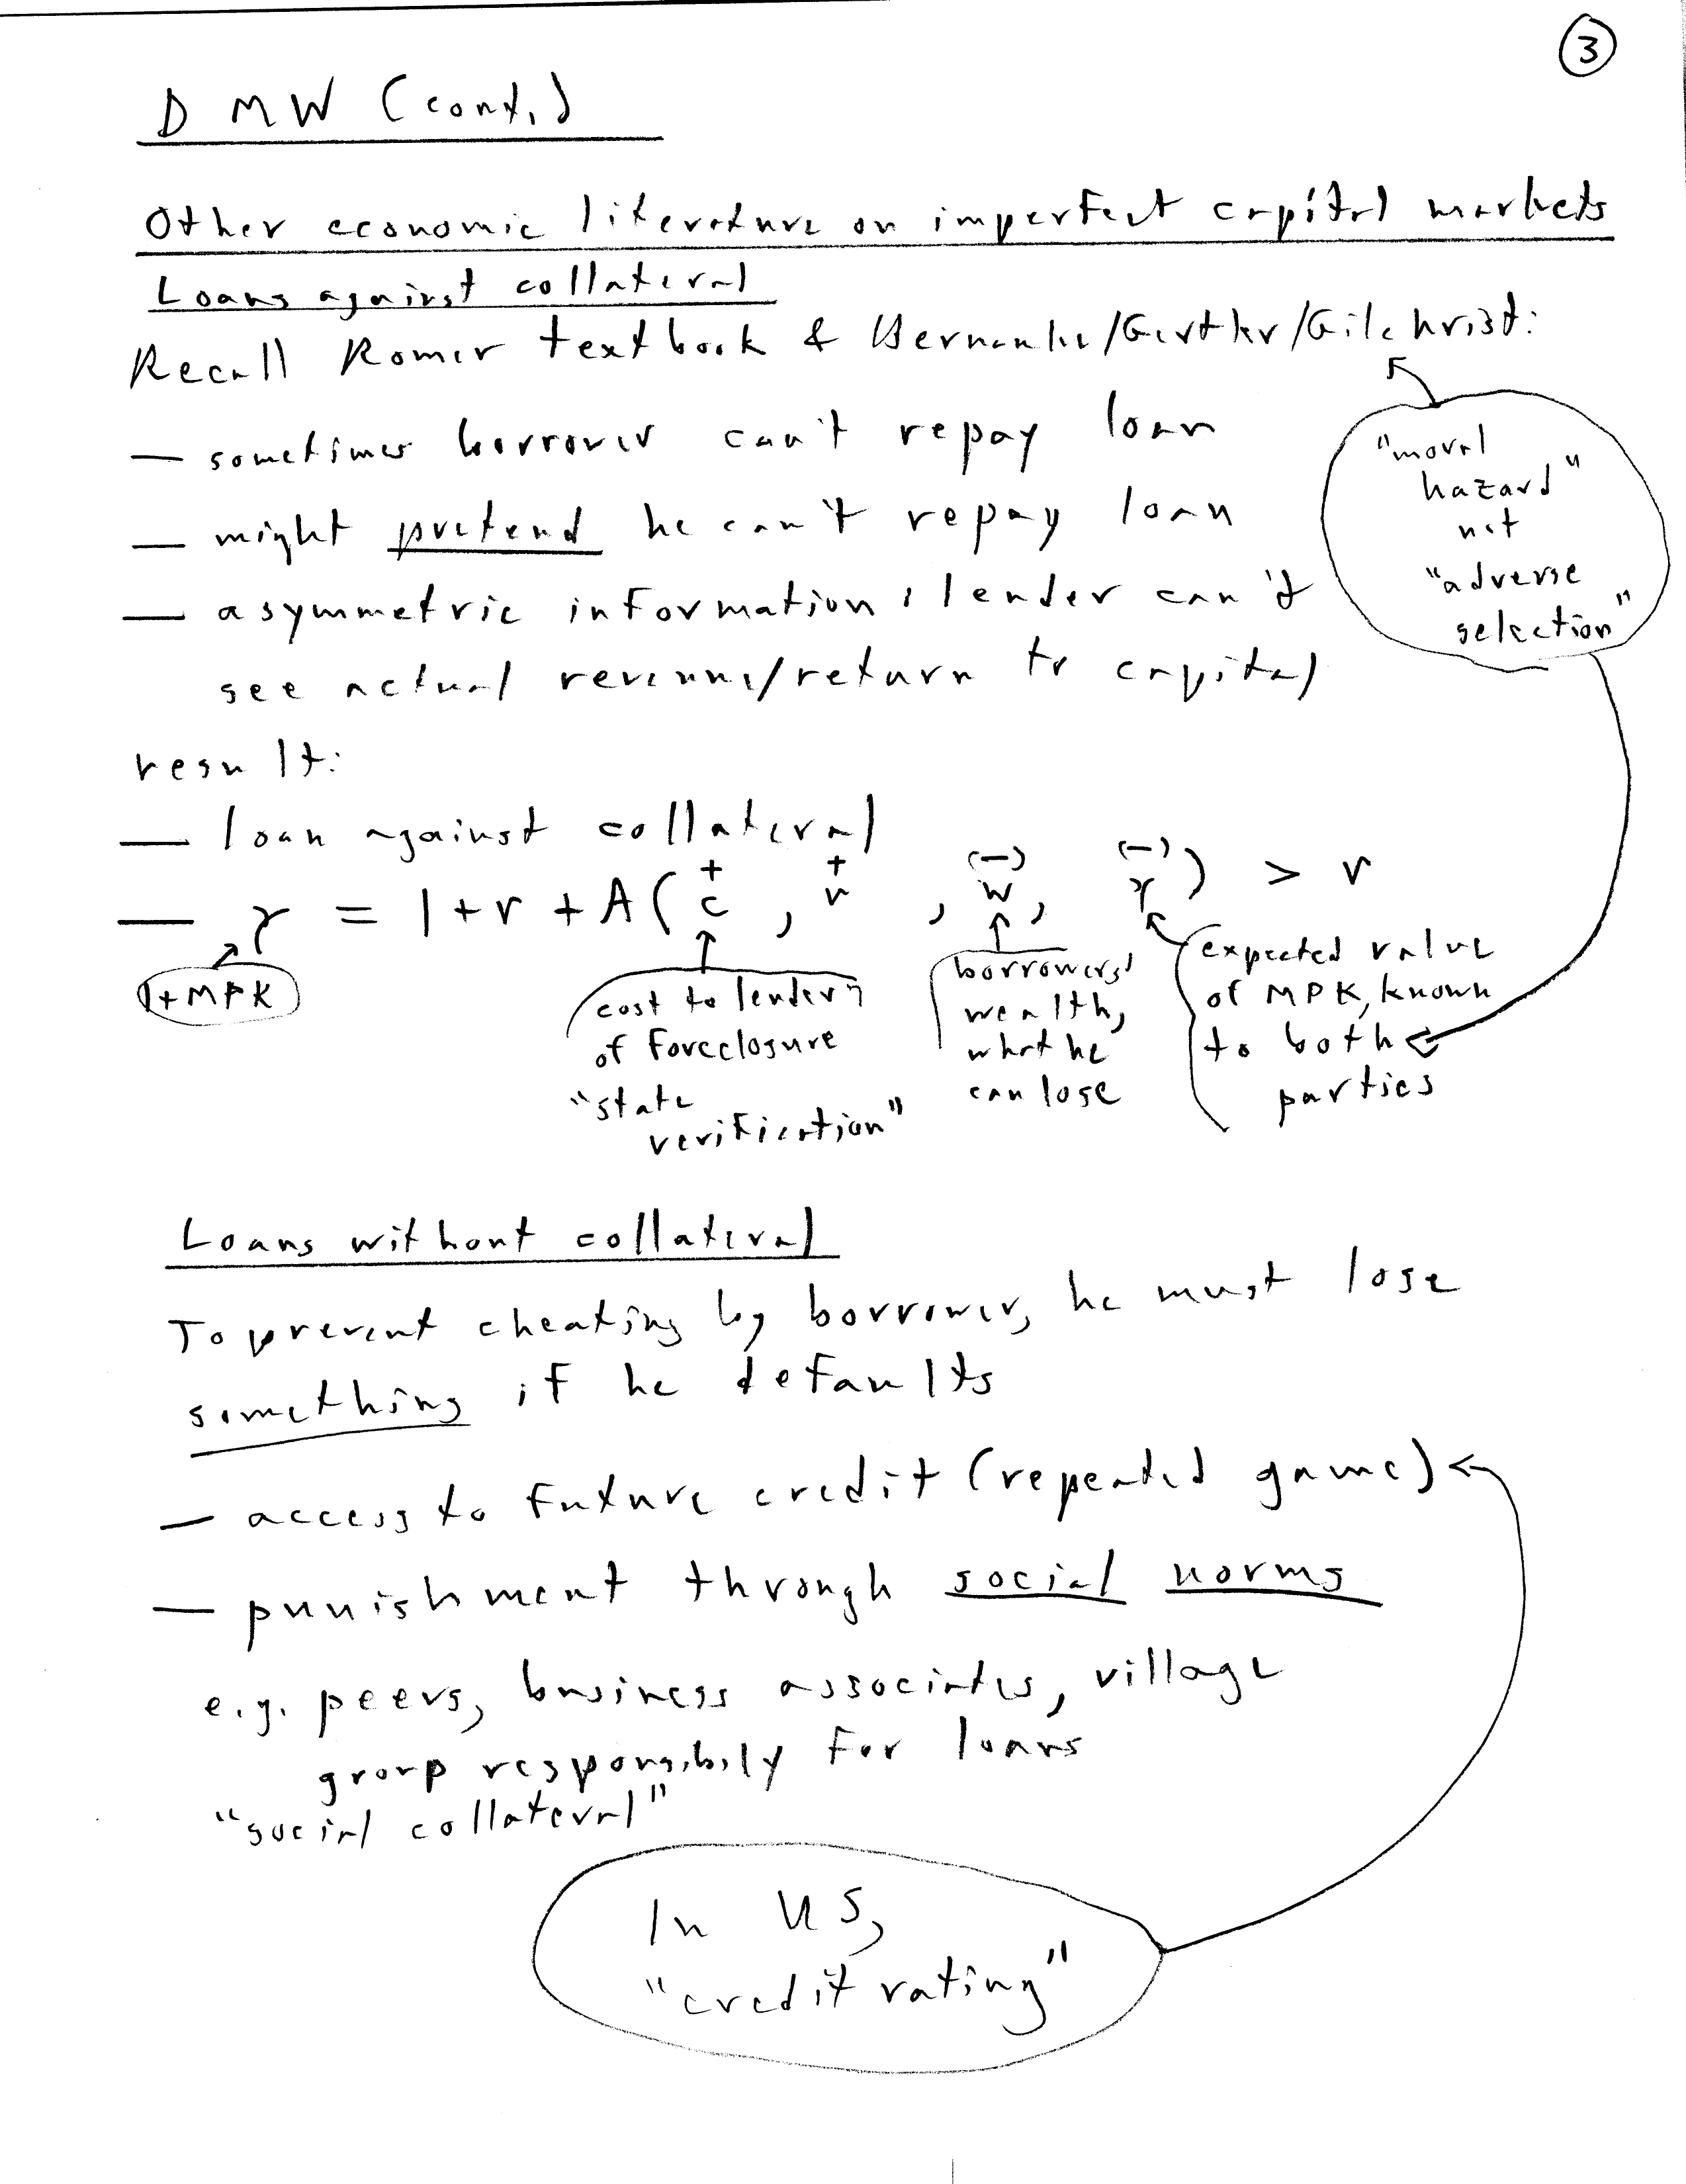 3
D M W (cont.)
Other economic literature on imperfect capital markets
Loans against collateral
Recall Romer textbook & Bernanke/Gertler/Gilchrist:
— sometimes borrower can't repay loan
— might pretend he can't repay loan
— asymmetric information: lender can't
see actual revenue/return to capital
"moral
hazard"
not
"adverse
selection"
result:
— loan against collateral
— γ = 1+r + A(c, r, w, γ) > r
+ + (-) (-)
1+MPK
cost to lender
of foreclosure
"state
verification"
borrowers'
wealth,
what he
can lose
expected value
of MPK, known
to both
parties
Loans without collateral
To prevent cheating by borrower, he must lose
something if he defaults
— access to future credit (repeated game)
— punishment through social norms
e.g. peers, business associates, village
group responsibily for loans
"social collateral"
In US,
"credit rating"